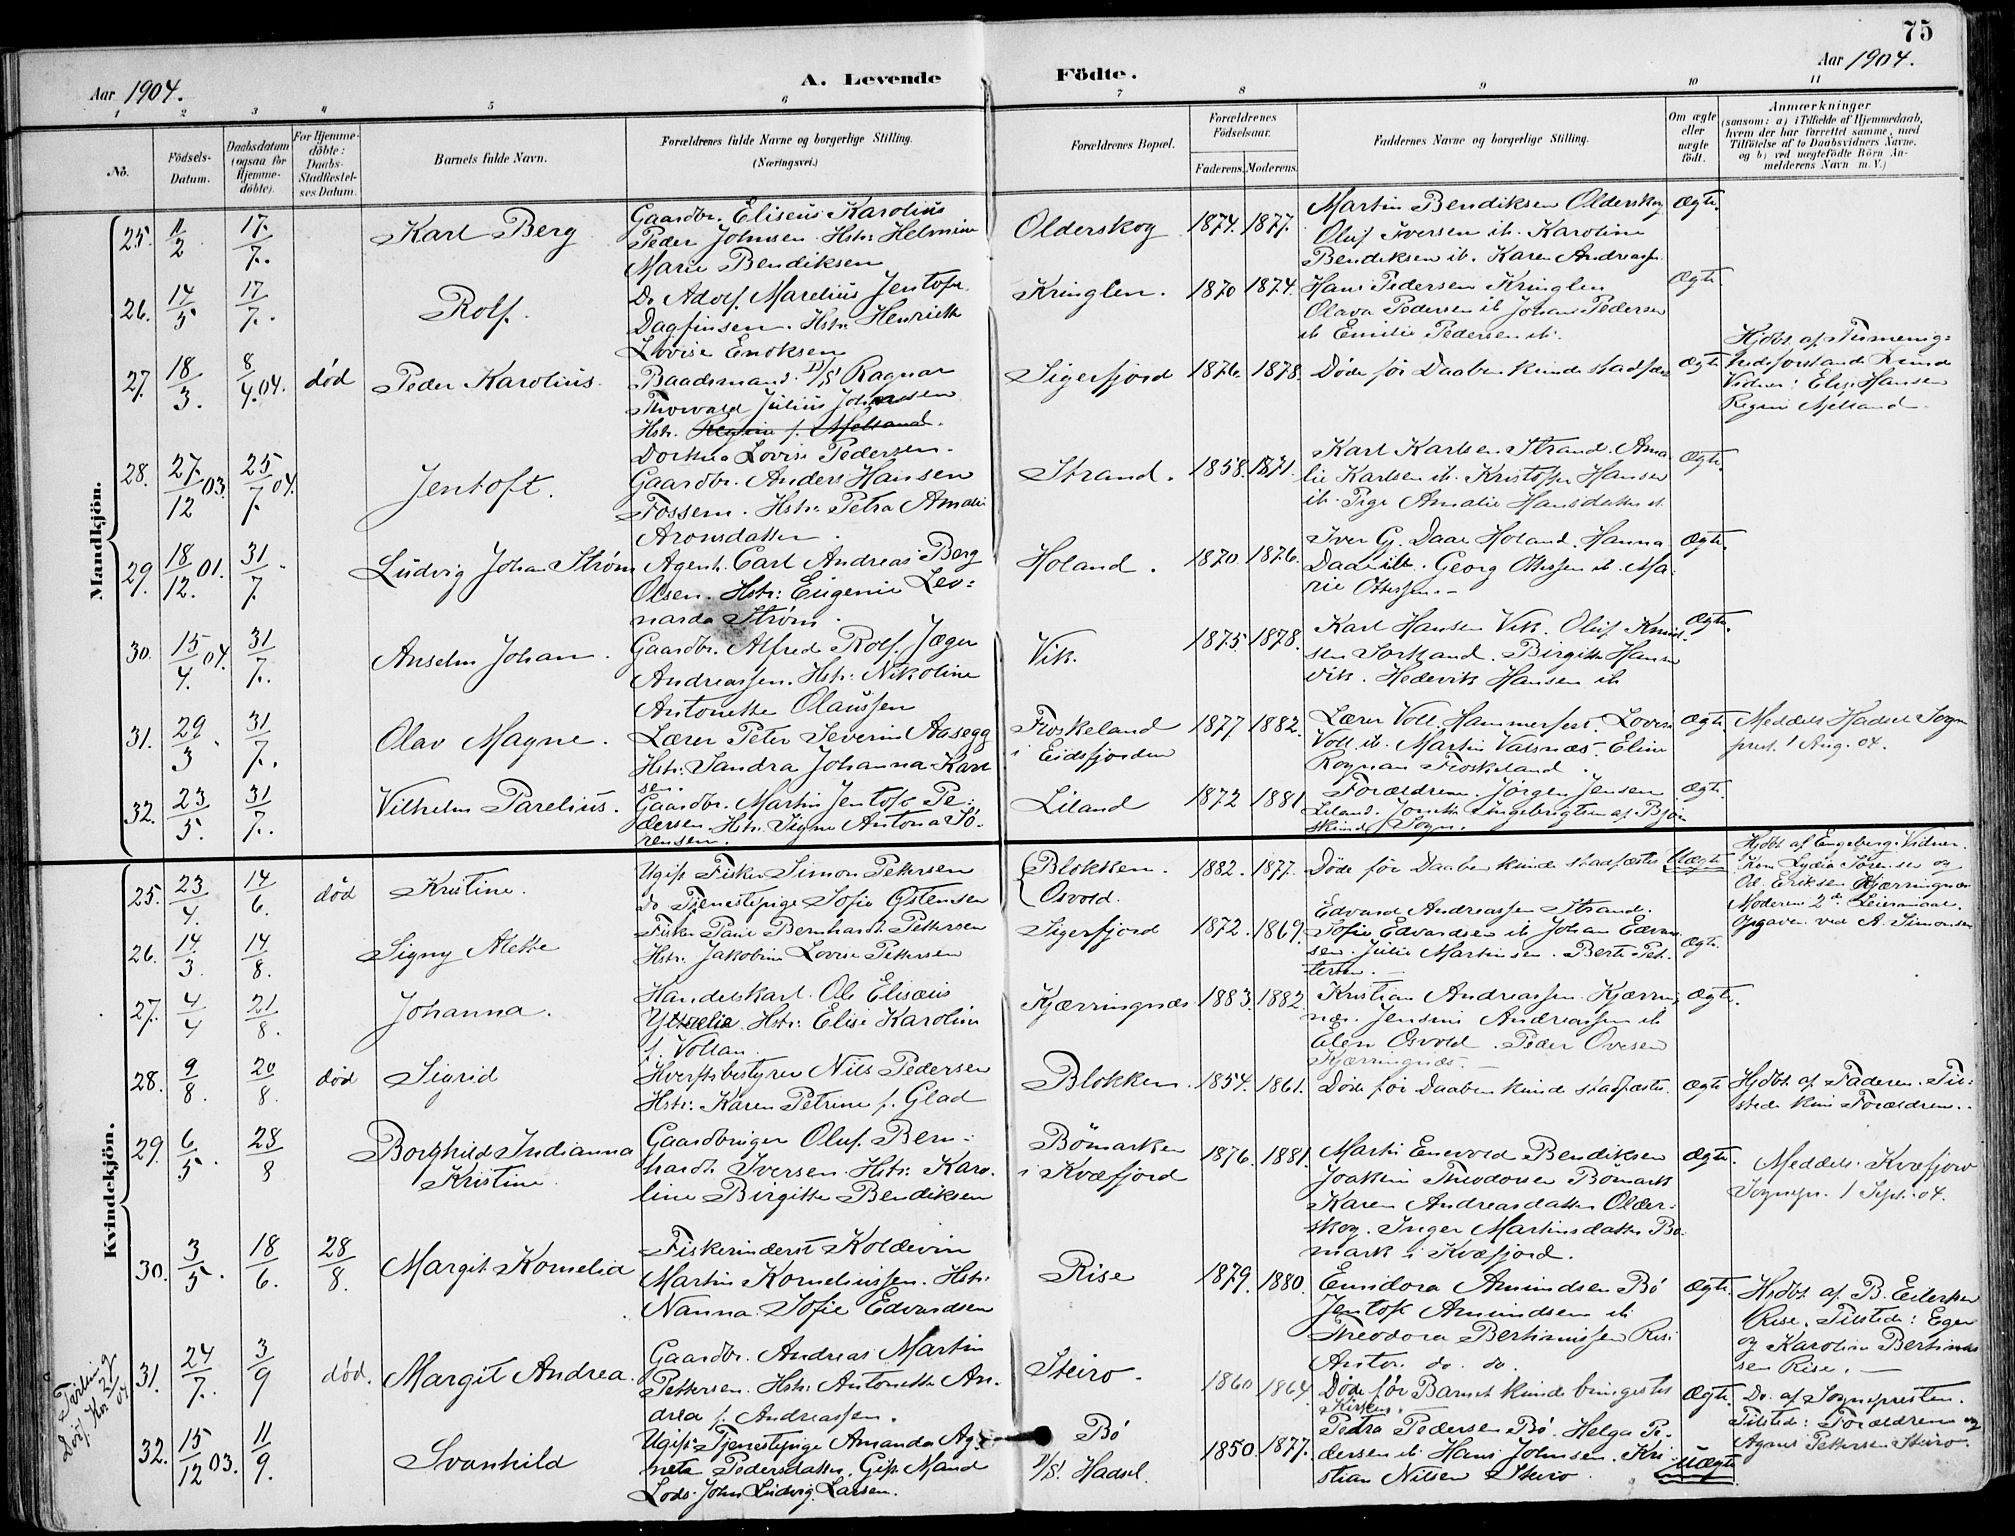 75
Aar 1904.
A. Levende Födte.
Aar 1904.
1 2 3 4 5 6 7 8 9 10 11
No.
Födsels-Datum.
Daabsdatum (ogsaa for Hjemmedöbte).
For Hjemmedöbte: Daabs-Stadfæstelses Datum.
Barnets fulde Navn.
Forældrenes fulde Navne og borgerlige Stilling. (Næringsvei.)
Forældrenes Bopæl.
Forældrenes Födselsaar.
Faderens. Moderens.
Faddernes Navne og borgerlige Stilling.
Om ægte eller uægte födt.
Anmærkninger
(saasom: a) i Tilfælde af Hjemmedaab, hvem der har forrettet samme, med Tilföielse af to Daabsvidners Navne, og b) ved uægtefödte Börn Anmelderens Navn m. V.)
Mandkjön.
25. 11/2 17/7. Karl Berg
Gaardbr. Eliseus Karolius
Peder Johnsen. Hstr. Helmine
Marie Bendiksen
Olderskog 1874. 1877.
Martin Bendiksen Olderskog
Oluf Iversen ib. Karoline
Bendiksen ib. Karen Andreass.
Ægte.
26. 14/5 17/7. Rolf.
Do Adolf Marelius Jentoft
Dagfinsen. Hstr. Henrikke
Lovise Enoksen
Kringlen. 1870 1874.
Hans Pedersen Kringlen
Olava Pedersen ib Johan Pedersen
ib Emilie Pedersen ib.
Ægte.
27. 18/3. 8/4.04. død Peder Karolius.
Baadsmand Ragnar
Thorvald Julius Johansen
Hstr.
Lovise Pedersen.
Sigerfjord 1876. 1878.
Døde før Daaben kunde stadfæstes
Ægte
Hjdbt. af
Vidner: Elise Hansen
28. 27/12 03. 25/7. 04. Jentoft.
Gaardbr. Anders Hansen
Fossem. Hstr. Petra Amalie
Aronsdatter.
Strand. 1858. 1871.
Karl Karlsen Strand. Ama
lie Karlsen ib. Kristoffer Hansen
ib. Pige Amalie Hansdatter ib
Ægte.
29. 18/12. 01. 31/7. Ludvig Johan Strøm
Agent. Carl Andreas Berg
Olsen. Hstr: Eugenie Leo=
narda Strøm.
Holand. 1870 1876.
Iver G. Daae Holand. Hanna
Daae ib. Georg Ottessen ib. Ma-
rie Ottessen.
Ægte.
30. 15/4. 04. 31/7. Anselm Johan.
Gaardbr. Alfred Rolf Jæger
Andreassen. Hstr: Nikoline
Antonette Olaussen
Vik. 1875. 1878.
Karl Hansen Vik. Oluf Knud-
sen Sortland. Birgitte Hansen
Vik. Hedevik Hansen ib
Ægte.
31. 29/3. 31/7. Olav Magne.
Lærer Peter Severin Aasegg
Hstr: Sandra Johanna Karl
sen.
Froskeland
i Eidsfjorden
1877 1882.
Lærer Voll. Hammerfest. Lovise
Voll ib. Martin Valsnæs. Eline
Rognan Froskeland.
Ægte.
Meddelt Hadsel Sogne
prest. 1 Aug. 04.
32. 23/5. 31/7. Vilhelm Parelius.
Gaardbr. Martin Jentoft Pe-
dersen. Hstr. Signe Antona Sö-
rensen.
Liland 1872 1881
Forældrene. Jørgen Jensen
Liland. Ingebrigtsen af Bjørn
skind Sogn.
Ægte.
Kvindekjön.
25. 23/4. 14/6. død Kristine.
Ugift Fisker Simon Pettersen
Do Tjenestepige Sofie Ostensen
Blokken.
Osvold.
1882. 1877.
Døde før Daaben kunde stadfæstes
Uægte
Hjdbt af Engeberg. Vidner.
Lydia Sørensen og
Ed. Eriksen Kjærringnæs
Moderens 2det Leiermaal.
Opgaven ved A. Simonsen
26. 14/3. 14/8. Signy Alette
Fisker Paul Bernhardt Pettersen
Hstr: Jakobine Lovise Pettersen
Sigerfjord 1872. 1869.
Edvard Andreassen Strand.
Sofie Edvardsen ib Johan Edvard
sen. Julie Martinsen. Berte Pet-
tersen.
Ægte.
27. 4/4 21/8. Johanna.
Handelskarl. Ole Elisæus
Hstr: Elise Karoline
f. Vollan.
Kjærringnæs 1883. 1882
Kristian Andreassen. Kjærring
næs. Jensine Andreassen ib
Elen Osvold. Peder Ovesen
Kjærringnæs.
Ægte.
28. 9/8. 20/8. død Sigrid
Hverfsbestyrer Nils Pedersen
Hstr: Karen Petrine f. Glad
Blokken. 1854. 1861.
Døde før Daaben kunde stadfæstes
Ægte
Hjdbt. af Faderen. Til=
stede kun Forældrene.
29. 6/5. 28/8 Borghild Indianna
Kristine
Gaardbruger Oluf Bern-
hardt Iversen Hstr: Karo-
line Birgitte Bendiksen
Bömarken
i Kvæfjord
1876. 1881.
Martin Enevold Bendiksen
Joakim Theodorsen Bömark
Karen Andreasdatter Older-
skog. Inger Martinsdatter Bö
mark i Kvæfjord.
Ægte.
Meddelt Kvæfjord
Sognepr. 1 Sept. 04.
30. 3/5. 18/6. 28/8. Margit Kornelia
Fiskerinderst Koldevin
Martin Korneliussen. Hstr:
Nanna Sofie Edvardsen
Rise 1879. 1880.
Emidora Amundsen Bö
Jentoft Amundsen ib.
Theodora Bertinussen Rise
Anton do. do.
Ægte.
Hjdbt. af B. Eilertsen
Rise. Tilstede:
og Karoline Bertinus
sen Rise.
Tvilling
31. 24/7. 3/9 død. Margit Andrea.
Gaardbr. Andreas Martin
Pettersen. Hstr. Antonette An-
drea f. Andreassen.
Steiro. 1860 1864
Døde før Barnet kunde bringes til
Kirken.
Ægte.
Do. af Sognepresten.
Tilstede: Forældrene og
Agnes Pettersen Steiro
32. 15/12 03. 11/9. Svanhild
Ugift Tjenestepige Amanda Ag-
nete Pedersdatter. Gift Mand
Lods John Ludvig Larsen.
Bö
Hadsel.
1850. 1877.
Petra Pedersen Bö. Helga Pe-
dersen ib. Hans Johnsen. Kri
stian Nilsen Steiro.
Uægte